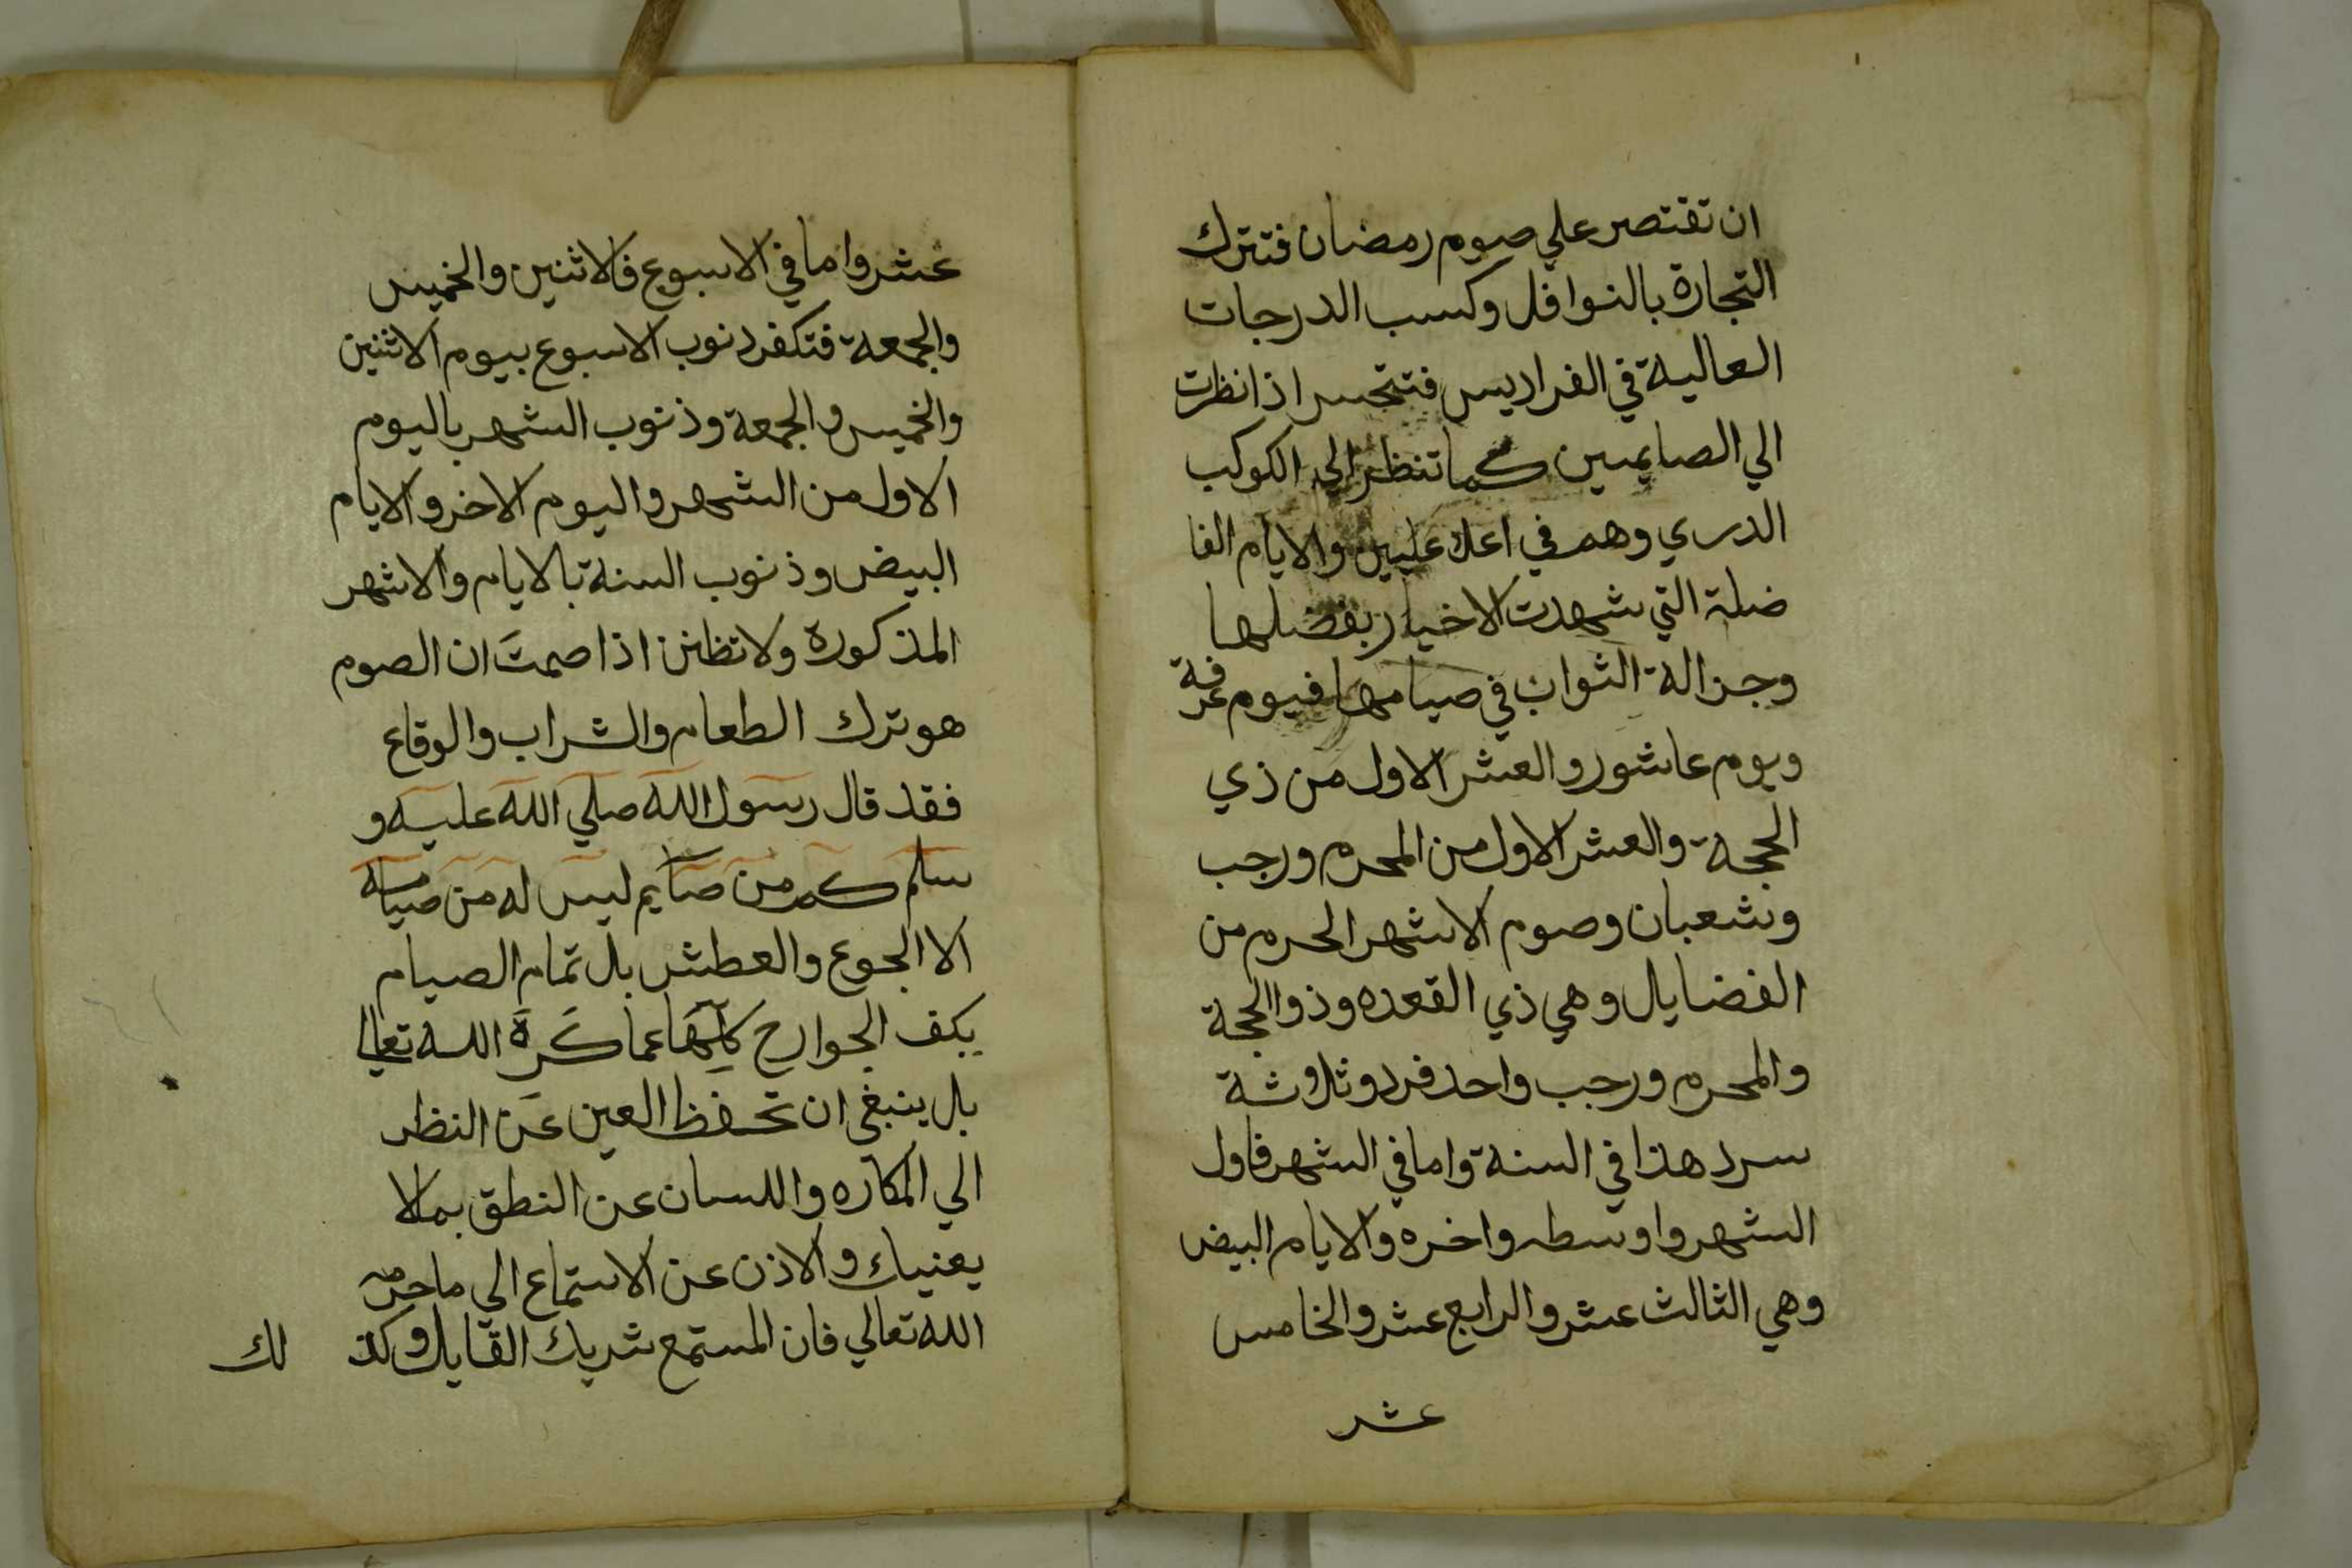 ان تقتصر علي صوم رمضان فتترك
التجارة بالنوافل وكسب الدرجات
العالية في الفراديس فتتحسر اذا نظرت
الي الصايمين كما تنظر الي الكوكب
الدري وهم في اعلا عليين والايام الفا
ضلة التي شهدت الاخيار بفضلها
وجزالة الثواب في صيامها فيوم عرفة
ويوم عاشور والعشر الاول من ذي
الحجة والعشر الاول من المحرم ورجب
وشعبان وصوم الاشهر الحرم من
الفضايال وهي ذي القعده وذوا الحجة
والمحرم ورجب واحد فرد وثلاثة
سرد هذا في السنة واما في الشهر فاول
الشهر واوسطه واخره والايام البيض
وهي الثالث عشر والرابع عشر والخامس
عشر
عشر واما في الاسبوع فالاثنين والخميس
والجمعة فتكفر ذنوب الاسبوع بيوم الاثنين
والخميس والجمعة وذنوب الشهر باليوم
الاول من الشهر واليوم الاخر والايام
البيض وذنوب السنة بالايام والاشهر
المذكورة ولا تظنن اذا صمتَ ان الصوم
هو ترك الطعام والشراب والوقاع
فقد قال رسول الله صلي الله عليه و
سلم كم من صايم ليس له من صيامه
الا الجوع والعطش بل تمام الصيام
بكف الجوارح كلِّهَا عما كَرِهَ الله تعالي
بل ينبغي ان تحفظ العين عَن النظر
الي المكاره واللسان عن النطق بما لا
يعنيك والاذن عن الاستماع الي ما حرمه
الله تعالي فان المستمع شريك القايل وكذ لك